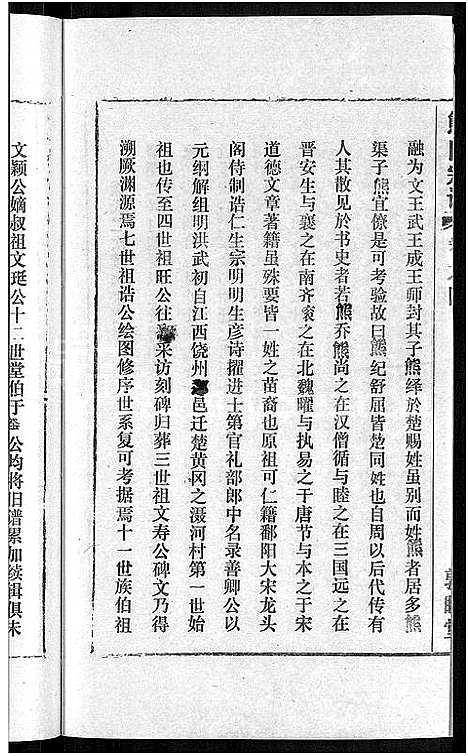 融为文王武王成王师封其子熊绎於楚赐姓虽别而姓熊者居多熊
渠子熊宜僚是可考验故曰熊纪舒屈皆楚同姓也自周以后代传有
人其散见於书史者若熊乔熊尚之在汉僧循与睦之在三国远之在
晋安生与襄之在南齐衮之在北魏曜与执易之于唐节与本之于宋
道德文章著籍虽殊要皆一姓之苗裔也原祖可仁籍鄱阳大宋龙头
阁侍制诰仁生宗明明生彦诗擢进士第官礼部郎中名录善卿公以
元纲解组明洪武初自江西饶州 邑迁楚黄冈之滠河村第一世始
祖也传至四世祖旺公往 采访刻碑归葬三世祖文寿公碑文乃得
溯厥渊源焉七世祖诰公绘图修序世系复可考据焉十一世族伯祖
文颖公嫡叔祖文珽公十二世堂伯于 公均将旧谱累加续辑俱未